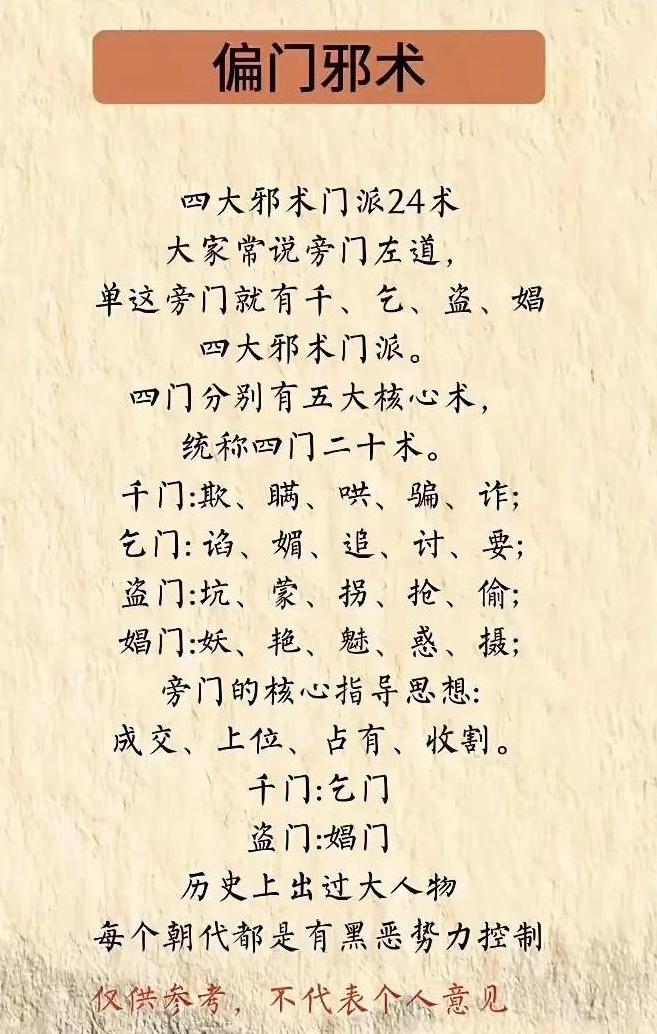 偏门邪术
四大邪术门派24术
大家常说旁门左道，
单这旁门就有千、乞、盗、娼
四大邪术门派。
四门分别有五大核心术，
统称四门二十术。
千门:欺、瞒、哄、骗、诈;
乞门: 谄、媚、追、讨、要;
盗门:坑、蒙、拐、抢、偷;
娼门:妖、艳、魅、惑、摄;
旁门的核心指导思想:
成交、上位、占有、收割。
千门:乞门
盗门:娼门
历史上出过大人物
每个朝代都是有黑恶势力控制
仅供参考，不代表个人意见